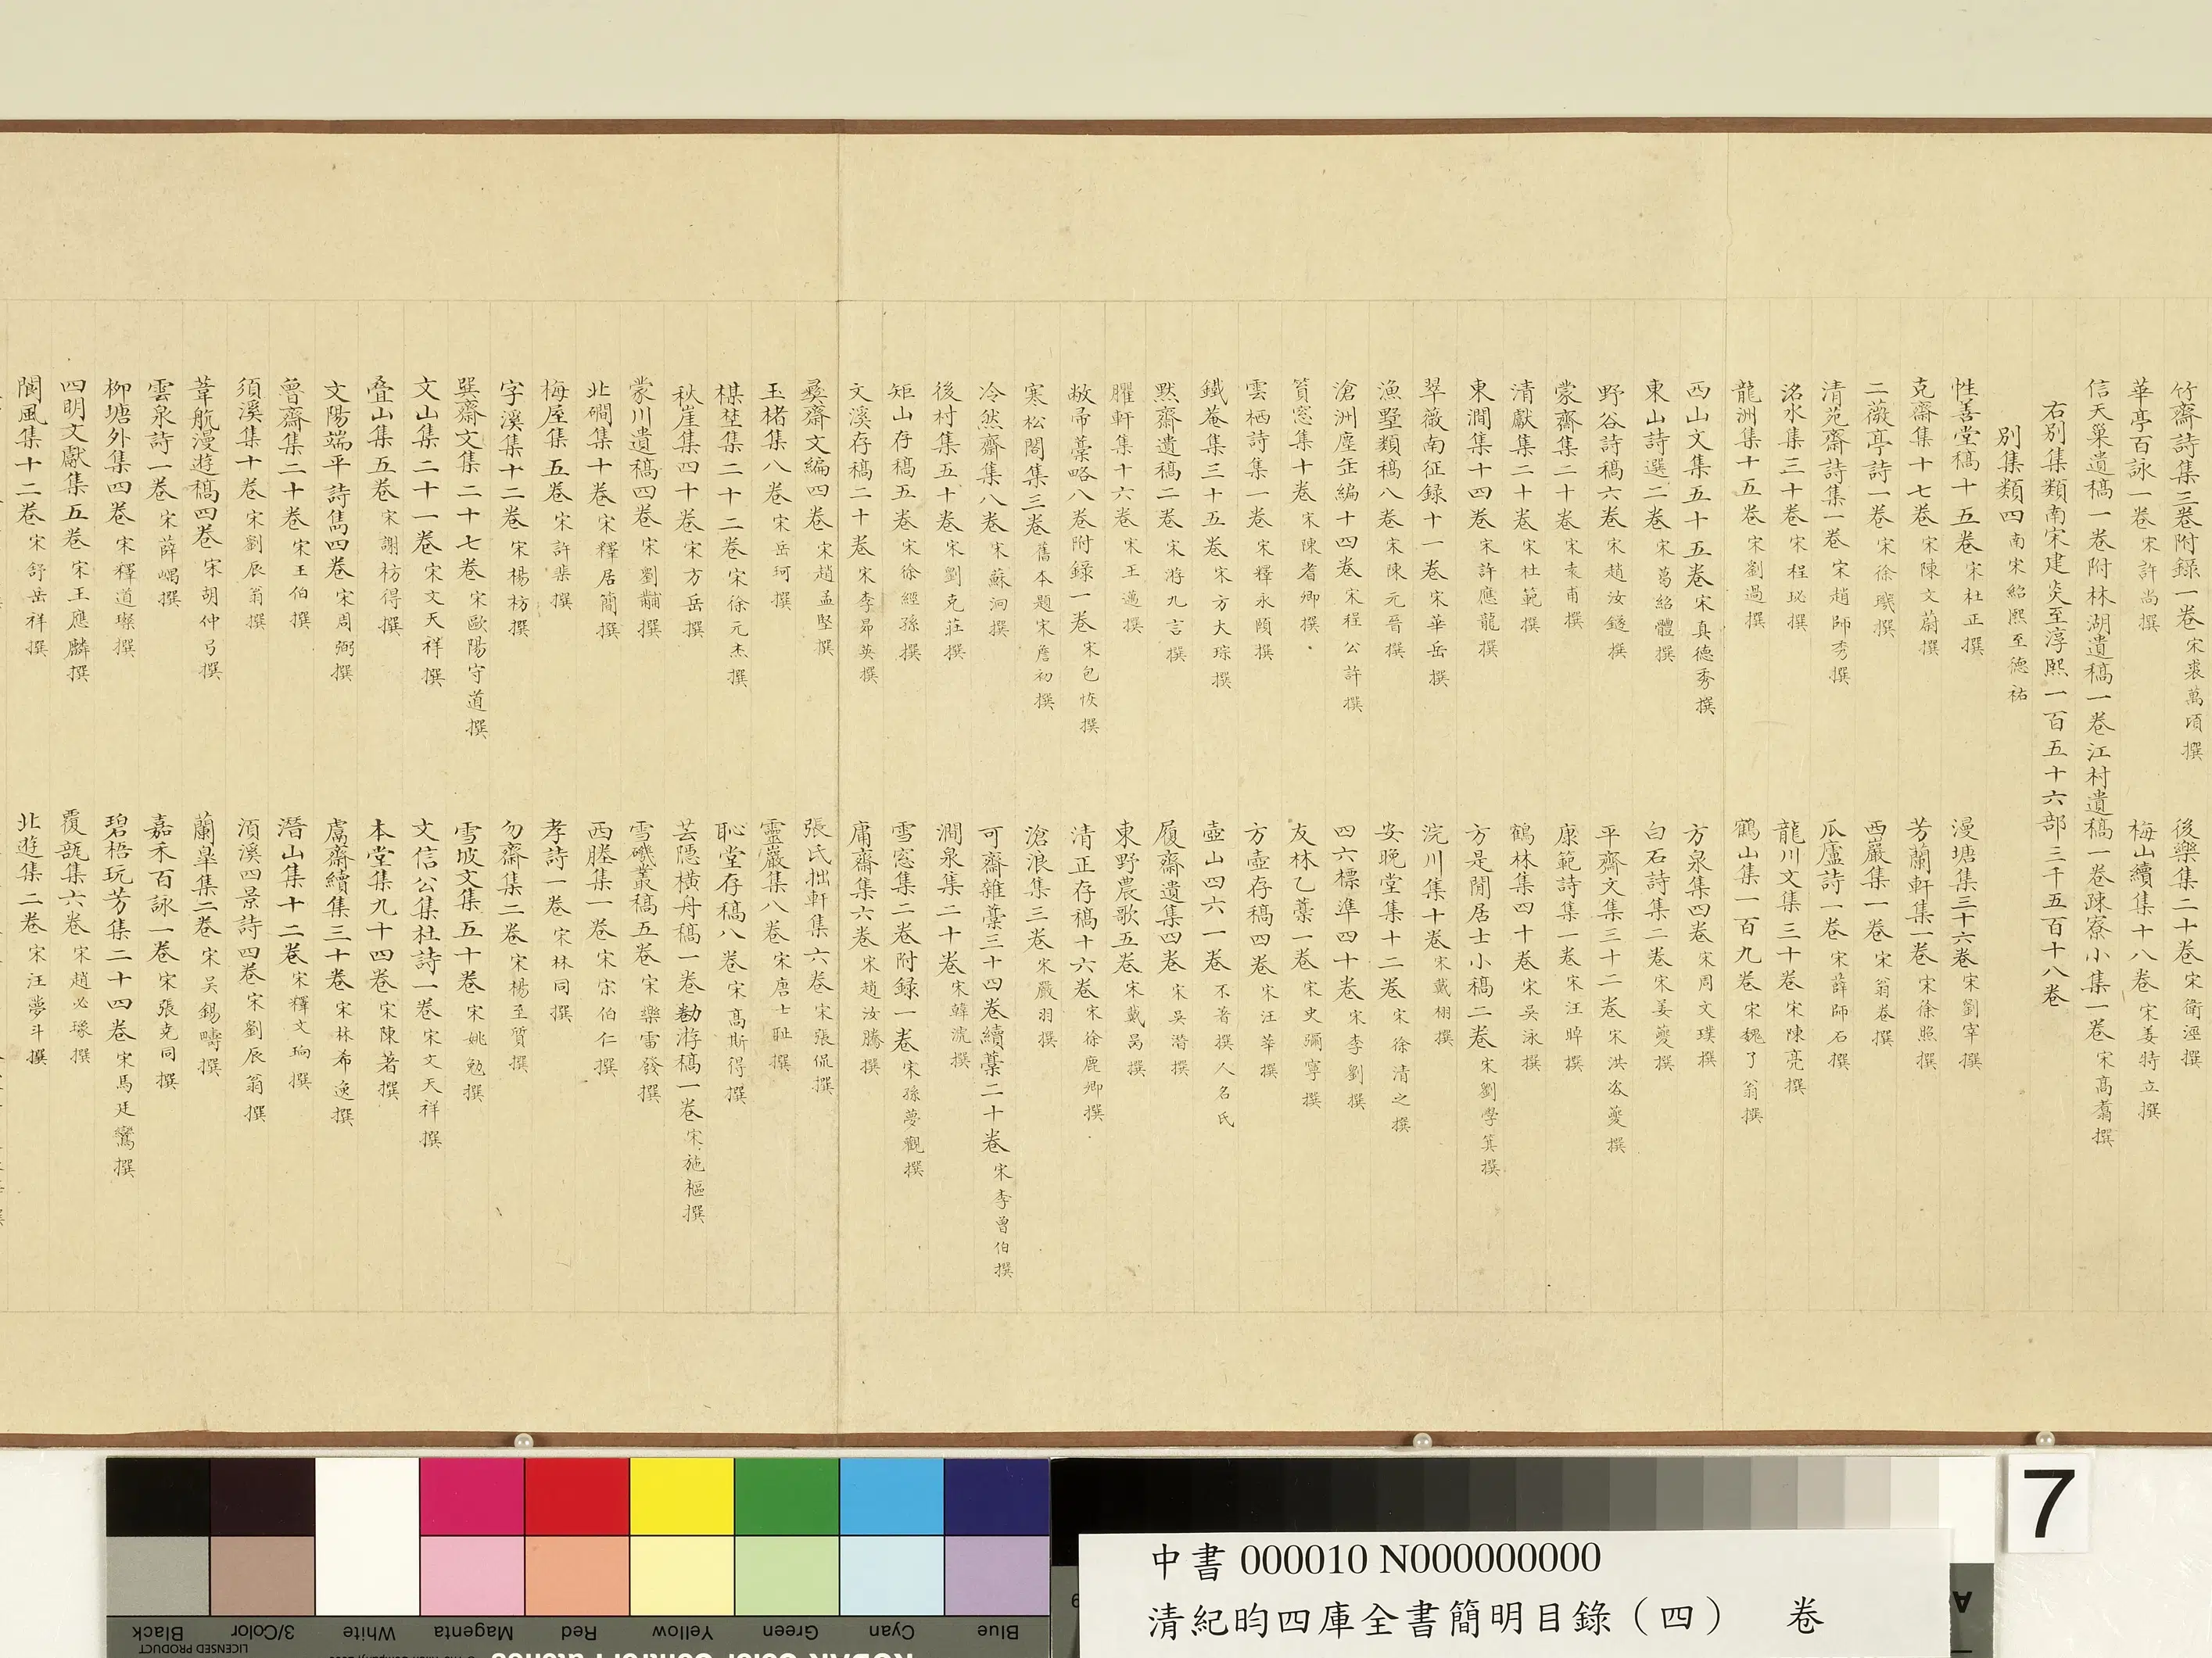 竹齋詩集三卷附録一卷 宋裘萬頃撰 後樂集二十卷 宋衛涇撰
華亭百詠一卷 宋許尚撰 梅山續集十八卷 宋姜特立撰
信天巢遺稿一卷附林湖遺稿一卷江村遺稿一卷疎寮小集一卷 宋髙翥撰
右別集類南宋建炎至淳熙一百五十六部三千五百十八卷
別集類四 南宋紹熙至德祐
性善堂稿十五卷 宋杜正撰 漫塘集三十六卷 宋劉宰撰
克齋集十七卷 宋陳文蔚撰 芳蘭軒集一卷 宋徐照撰
二薇亭詩一卷 宋徐璣撰 西巖集一卷 宋翁卷撰
清苑齋詩集一卷 宋趙師秀撰 瓜廬詩一卷 宋薛師石撰
洺水集三十卷 宋程珌撰 龍川文集三十卷 宋陳亮撰
龍洲集十五卷 宋劉過撰 鶴山集一百九卷 宋魏了翁撰
西山文集五十五卷 宋真德秀撰 方泉集四卷 宋周文璞撰
東山詩選二卷 宋葛紹體撰 白石詩集二卷 宋姜夔撰
野谷詩稿六卷 宋趙汝鐩撰 平齋文集三十二卷 宋洪咨夔撰
蒙齋集二十卷 宋袁甫撰 康範詩集一卷 宋汪晫撰
清獻集二十卷 宋杜範撰 鶴林集四十卷 宋吳泳撰
東澗集十四卷 宋許應龍撰 方是閒居士小稿二卷 宋劉學箕撰
翠薇南征録十一卷 宋華岳撰 浣川集十卷 宋戴栩撰
漁墅類稿八卷 宋陳元晉撰 安晚堂集十二卷 宋徐清之撰
滄洲塵缶編十四卷 宋程公許撰 四六標準四十卷 宋李劉撰
篔窓集十卷 宋陳耆卿撰 友林乙藁一卷 宋史彌寧撰
雲栖詩集一卷 宋釋永頤撰 方壺存稿四卷 宋汪莘撰
鐵菴集三十五卷 宋方大琮撰 壺山四六一卷 不著撰人名氏
黙齋遺稿二卷 宋游九言撰 履齋遺集四卷 宋吳潛撰
臞軒集十六卷 宋王邁撰 東野農歌五卷 宋戴昺撰
敝帚藁略八卷附録一卷 宋包恢撰 清正存稿十六卷 宋徐鹿卿撰
寒松閣集三卷 舊本題宋詹初撰 滄浪集三卷 宋嚴羽撰
冷然齋集八卷 宋蘇泂撰 可齋雜藁三十四卷續藁二十卷 宋李曾伯撰
後村集五十卷 宋劉克莊撰 澗泉集二十卷 宋韓淲撰
矩山存稿五卷 宋徐經孫撰 雪窓集二卷附録一卷 宋孫夢觀撰
文溪存稿二十卷 宋李昴英撰 庸齋集六卷 宋趙汝騰撰
彝齋文編四卷 宋趙孟堅撰 張氏拙軒集六卷 宋張侃撰
玉楮集八卷 宋岳珂撰 靈巖集八卷 宋唐士耻撰
楳埜集二十二卷 宋徐元杰撰 恥堂存稿八卷 宋髙斯得撰
秋崖集四十卷 宋方岳撰 芸隱橫舟稿一卷勌游稿一卷 宋施樞撰
蒙川遺稿四卷 宋劉黼撰 雪磯叢稿五卷 宋樂雷發撰
北磵集十卷 宋釋居簡撰 西塍集一卷 宋宗伯仁撰
梅屋集五卷 宋許棐撰 孝詩一卷 宋林同撰
字溪集十二卷 宋楊枋撰 勿齋集二卷 宋楊至質撰
巽齋文集二十七卷 宋歐陽守道撰 雪坡文集五十卷 宋姚勉撰
文山集二十一卷 宋文天祥撰 文信公集杜詩一卷 宋文天祥撰
叠山集五卷 宋謝枋得撰 本堂集九十四卷 宋陳著撰
文陽端平詩雋四卷 宋周弼撰 鬳齋續集三十卷 宋林希逸撰
魯齋集二十卷 宋王伯撰 潛山集十二卷 宋釋文珦撰
須溪集十卷 宋劉辰翁撰 須溪四景詩四卷 宋劉辰翁撰
葦航漫遊稿四卷 宋胡仲弓撰 蘭皋集二卷 宋吳錫疇撰
雲泉詩一卷 宋薛嵎撰 嘉禾百詠一卷 宋張堯同撰
柳塘外集四卷 宋釋道璨撰 碧梧玩芳集二十四卷 宋馬廷鸞撰
四明文獻集五卷 宋王應麟撰 覆瓿集六卷 宋趙必𤩪撰
閬風集十二卷 宋舒岳祥撰 北遊集二卷 宋汪夢斗撰
7
中書 000010 N000000000
清紀昀四庫全書簡明目錄（四） 卷
Black 3/Color White Magenta Red Yellow Green Cyan Blue
LICENSED PRODUCT
A